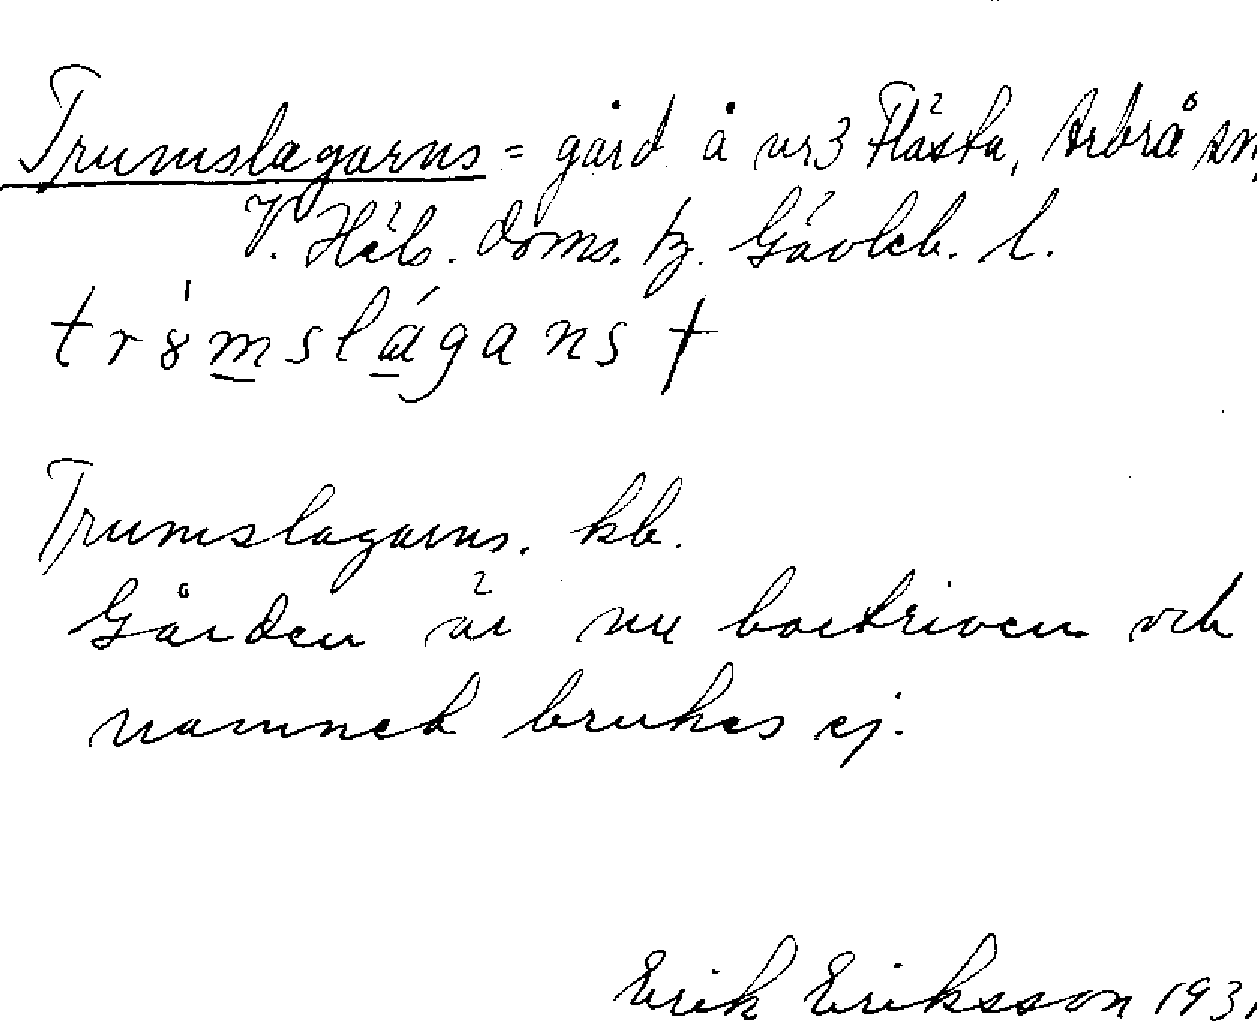 Trumslagarns = gård å nr 3 Flästa, Arbrå sn,
V. Häls. doms. tz. Gävleb. l.
tr8mslágans †
Trumslagarns. kb.
Gården är nu bortriven och
namnet brukas ej.
Erik Eriksson 193